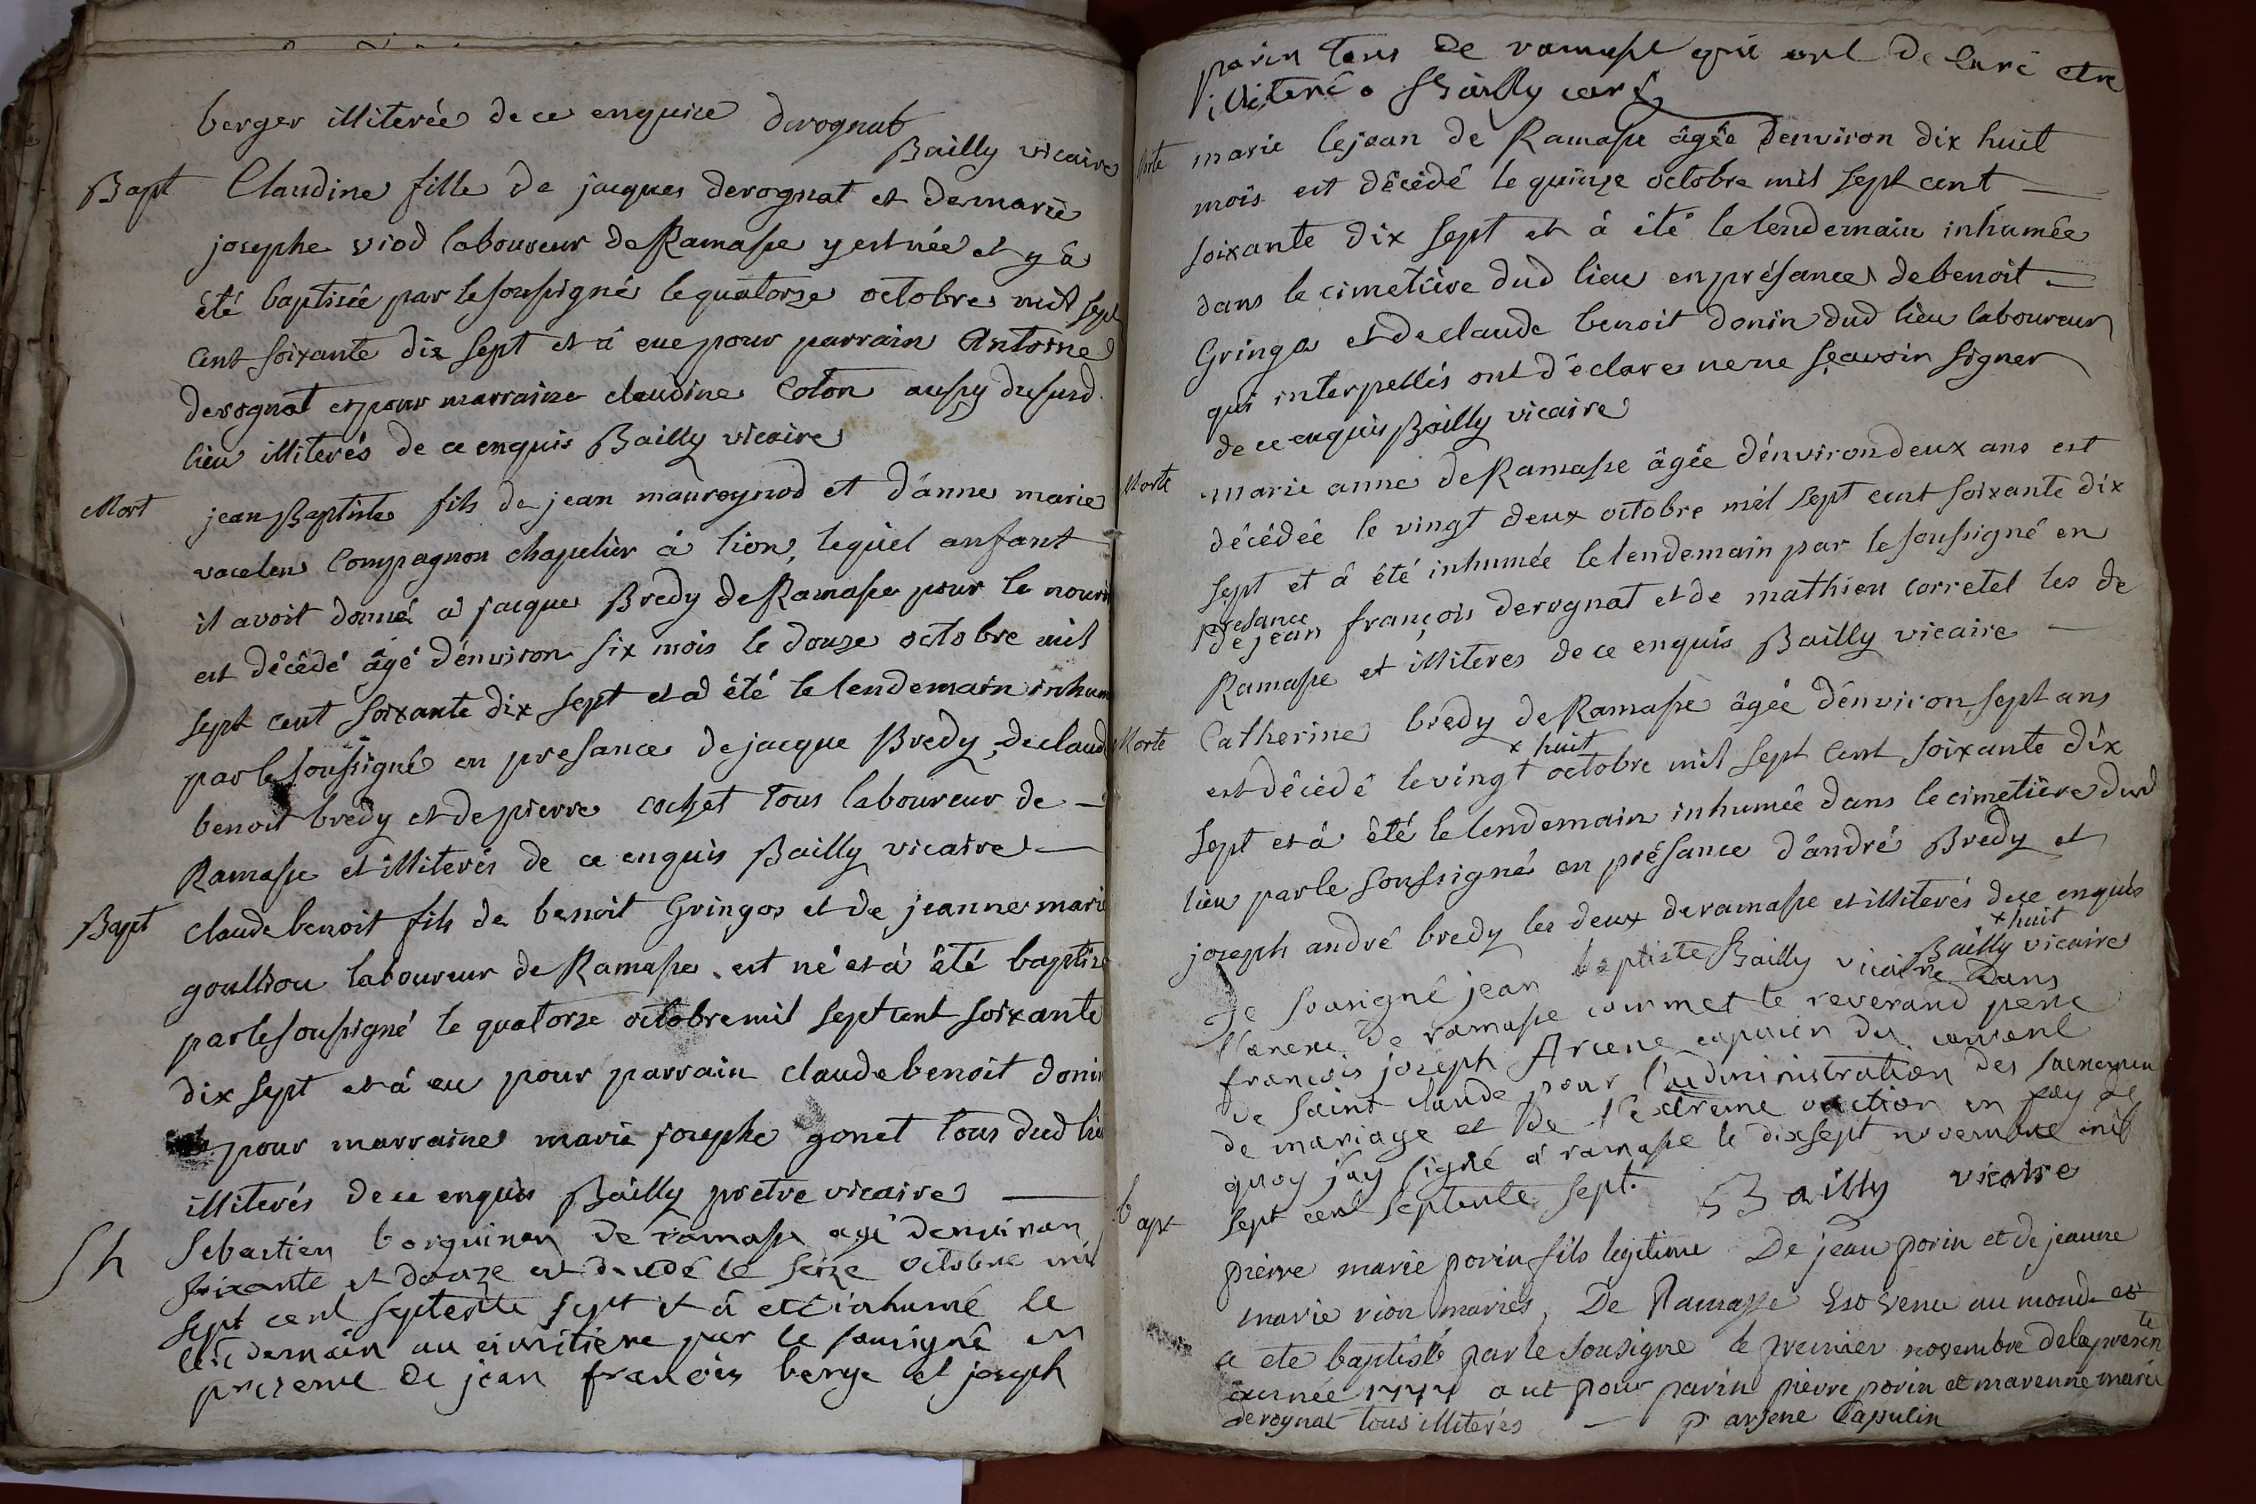 berger illiterée de ce enquise derognat
Bailly vicaire
Bapt Claudine fille de jacques derognat et de marie
josephe viod laboureur de Ramasse y est née et y a
été baptisée par le soussigné le quatorze octobre mil sept
cent soixante dix sept et à eue pour parrain Antoine
derognat et pour marraine claudine Coton aussy du susd.
lieu illiterés de ce enquis Bailly vicaire
Mort jean Baptiste fils de jean maureynod et d'anne marie
vacelen Compagnon chapelier à lion, lequel anfant
il avoit donné à jacque Bredy de Ramasse pour le nourir
est décédé âgé d'environ six mois le douze octobre mil
sept cent soixante dix sept et a été le lendemain inhum
par le soussigné en presance de jacque Bredy, de claude
benoit bredy et de pierre cochet tous laboureur de
Ramasse et illiterés de ce enquis Bailly vicaire
Bapt claude benoit fils de benoit Gringoz et de jeanne marie
goulliou laboureur de Ramasse est né et à été baptisé
par le soussigné le quatorze octobre mil sept cent soixante
dix sept et à eu pour parrain claude benoit donin
pour marraine marie josephe gonet tous dud lieu
illiterés de ce enquis Bailly pretre vicaire
Sh Sebastien borguinon de ramasse agé denviron
soixante et douze est decedé le seize octobre mil
sept cent septente sept et à eté inhumé le
lendemain au cimitiere par le sousigné en
presence de jean francois berge et joseph
parin tous de ramasse qui ont declaré etre
illiteré. Bailly
marie lejean de Ramasse âgée denviron dix huit
mois est décédé le quinze octobre mil sept cent
soixante dix sept et à été le lendemain inhumée
dans le cimetière dud lieu en présance de benoit
Gringoz et de claude benoit donin dud lieu laboureur
qui interpellés ont déclare ne ne sçavoir signer
de ce enquis Bailly vicaire
Morte marie anne de Ramasse âgée d'environ deux ans est
décédée le vingt deux octobre mil sept cent soixante dix
sept et à été inhumée le lendemain par le soussigné en
presance
de jean françois derognat et de mathieu corretel les de
Ramasse et illiteres de ce enquis Bailly vicaire
Morte Catherine bredy de Ramasse âgée d'environ sept ans
x huit
est décédé le vingt octobre mil sept cent soixante dix
sept et à été le lendemain inhumée dans le cimetière dud
lieu par le soussigné en présance d'andré Bredy et
joseph andré bredy les deux de ramasse et illiterés de ce enquis
x huit
Bailly vicaire
Je sousigné jean baptiste Bailly vicaire dans
de ramasse commet le reverand pere
francois joseph Arcene capucin du couvent
de saint claude pour l'administration des sacremen
de mariage et de l'extreme onction en foy de
quoy jay signé à ramasse le dixsept novembre mil
sept cent septente sept. Bailly vicaire
bapt pierre marie porin fils legitime De jean porin et de jeanne
marie vion mariés, De Ramasse Est venu au monde et
a ete baptisé par le Sousigné le premier novembre de la presen
te
année 1777 a ut pour parin pierre porin et marenne marie
derognat tous illiterés p arsene Capucin